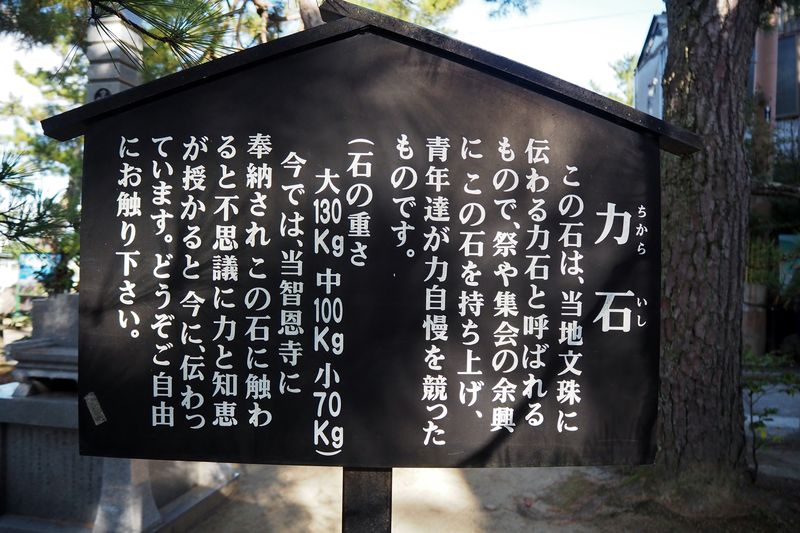 力石
ちから いし
この石は、当地文珠に
伝わる力石と呼ばれる
もので、祭や集会の余興
に この石を持ち上げ、
青年達が力自慢を競った
ものです。
(石の重さ
大130Kg 中100Kg 小70Kg)
今では、当智恩寺に
奉納され この石に触わ
ると不思議に力と知恵
が授かると 今に、伝わっ
ています。どうぞご自由
にお触り下さい。